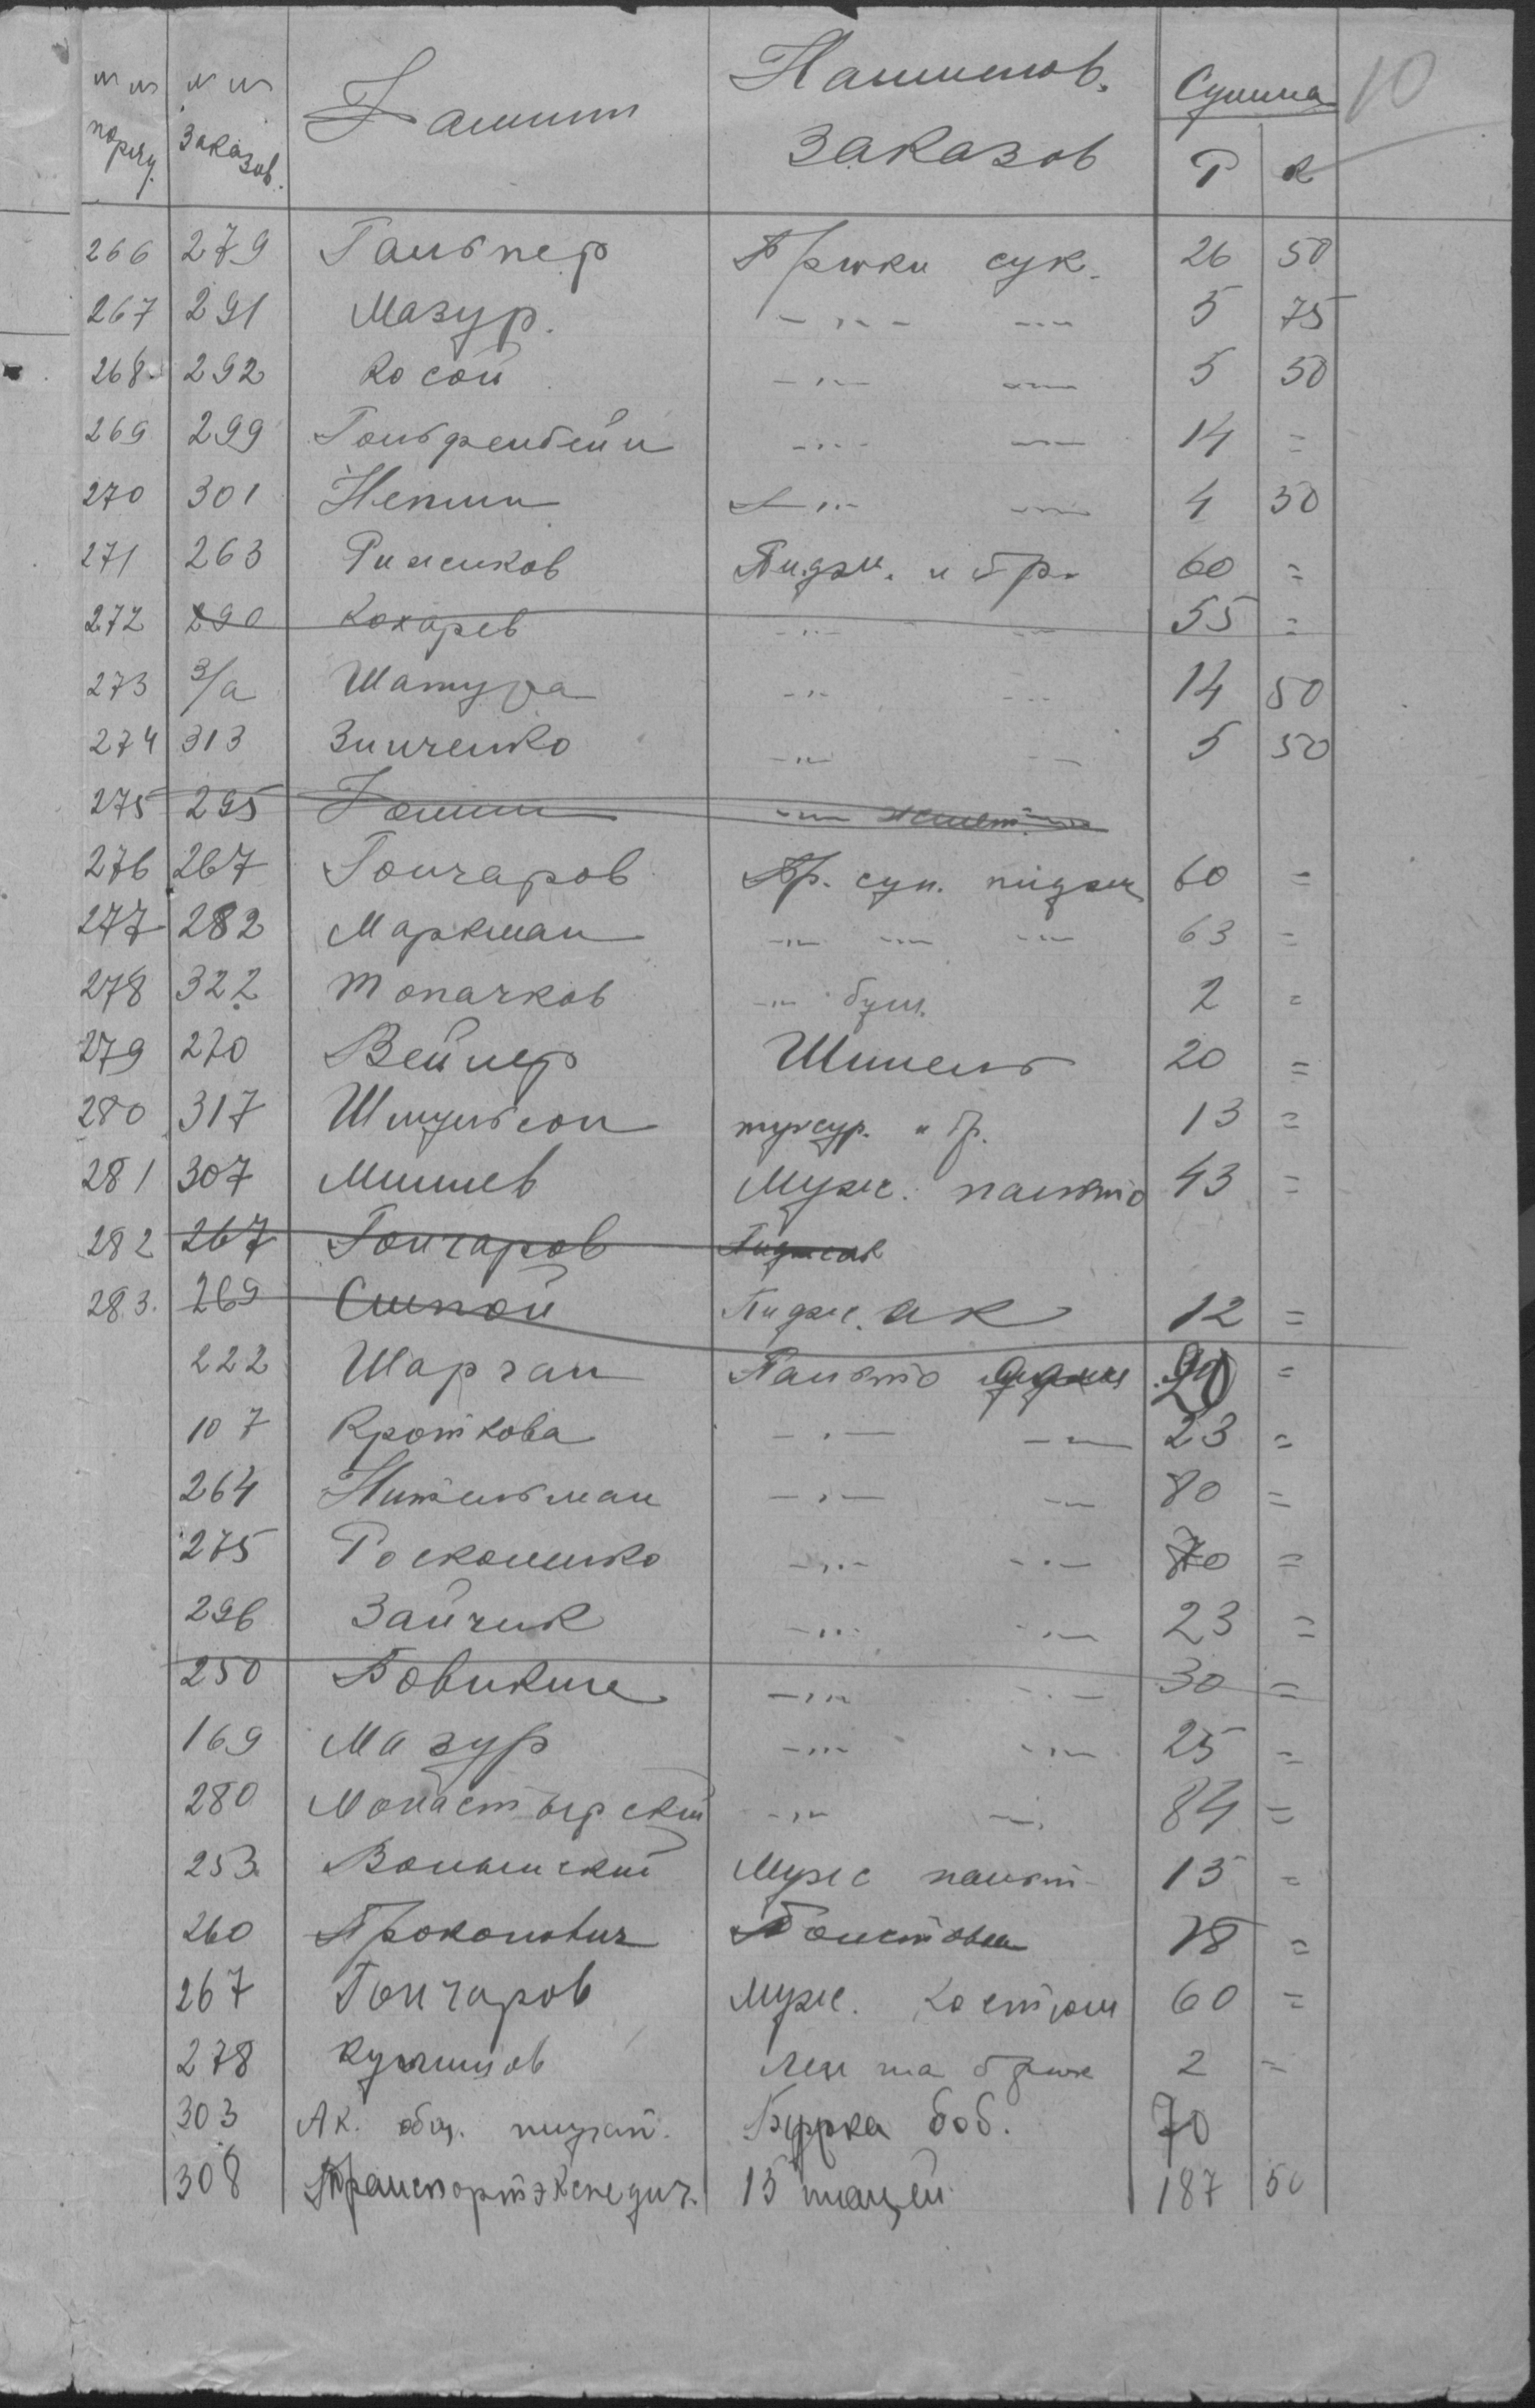 10
№№ по ряду. №№ заказов. Фамил Наименов. заказов Сумма Р К
266 279 Гальпер Брюки сук. 26 50
267 291 Мазур. -„- -„- 5 75
268 292 Косой -„- -„- 5 50
269 299 Гольфенбейн -„- -„- 14 =
270 301 Непши -„- -„- 4 50
271 263 Рижиков Пидж. и бр. 60 =
272 290 Кокарев -„- -„- 55 =
273 3/а Шатура -„- -„- 14 50
274 313 Зинченко -„- -„- 5 50
275 295 Фомин -„-
276 267 Гончаров Бр. сук. пиджк 60 =
277 282 Маркман -„- -„- -„- 63 =
278 322 Топачков -„- бум. 2 =
279 270 Вейнер Шинель 20 =
280 317 Шмульсон тужур. и бр. 13 =
281 307 Минцев Мужс. пальто 43 =
282 267 Гончаров Пиджак
283. 269 Слепой Пиджак 12 =
222 Шарган Пальто 20 =
107 Кроткова -„- -„- 23 =
264 Нительман -„- -„- 80 =
275 Роскошенко -„- -„- 70 =
296 Зайчик -„- -„- 23 =
250 Бовикше -„- -„- 30 =
169 Мазур -„- -„- 25 =
280 Монастырский -„- -„- 84 =
253. Волынский Мужс пальт 15 =
260 Прокопович Толстовка 18 =
267 Гончаров Мужс. Костюм 60 =
278 Лента брюк 2 =
303 Ак. общ. Бурка боб. 70
308 Транспортэкспедич. 15 плащей 187 50